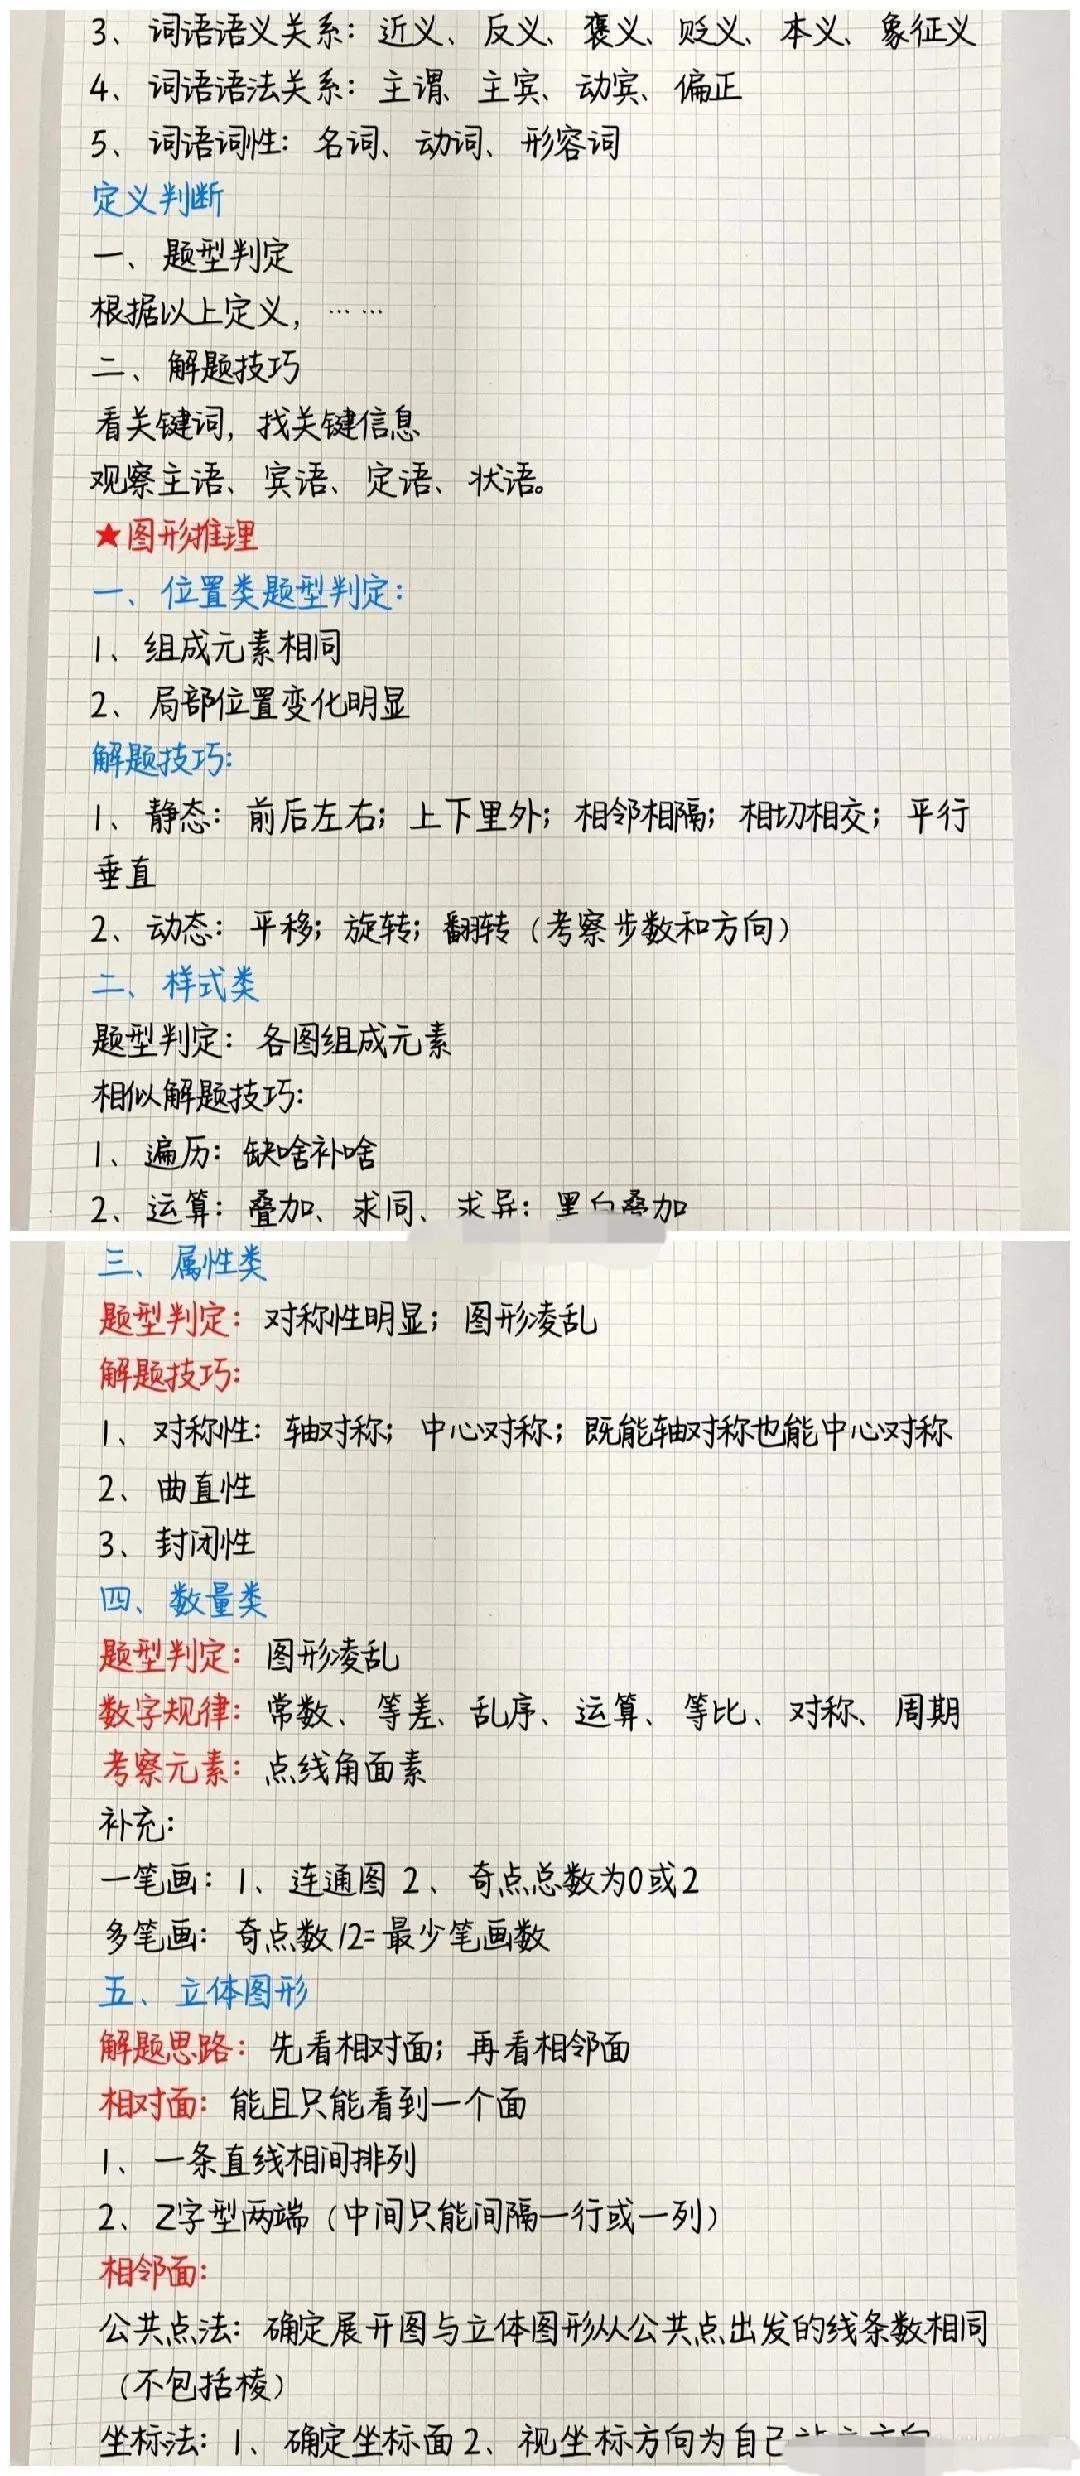 3、词语语义关系：近义、反义、褒义、贬义、本义、象征义
4、词语语法关系：主谓、主宾、动宾、偏正
5、词语词性：名词、动词、形容词
定义判断
一、题型判定
根据以上定义，……
二、解题技巧
看关键词，找关键信息
观察主语、宾语、定语、状语。
★图形推理
一、位置类题型判定：
1、组成元素相同
2、局部位置变化明显
解题技巧：
1、静态：前后左右；上下里外；相邻相隔；相切相交；平行
垂直
2、动态：平移；旋转；翻转（考察步数和方向）
二、样式类
题型判定：各图组成元素
相似解题技巧：
1、遍历：缺啥补啥
2、运算：叠加、求同、求异；黑白叠加
三、属性类
题型判定：对称性明显；图形凌乱
解题技巧：
1、对称性：轴对称；中心对称；既能轴对称也能中心对称
2、曲直性
3、封闭性
四、数量类
题型判定：图形凌乱
数字规律：常数、等差、乱序、运算、等比、对称、周期
考察元素：点线角面素
补充：
一笔画：1、连通图 2、奇点总数为0或2
多笔画：奇点数/2=最少笔画数
五、立体图形
解题思路：先看相对面；再看相邻面
相对面：能且只能看到一个面
1、一条直线相间排列
2、Z字型两端（中间只能间隔一行或一列）
相邻面：
公共点法：确定展开图与立体图形从公共点出发的线条数相同
（不包括棱）
坐标法：1、确定坐标面 2、视坐标方向为自己